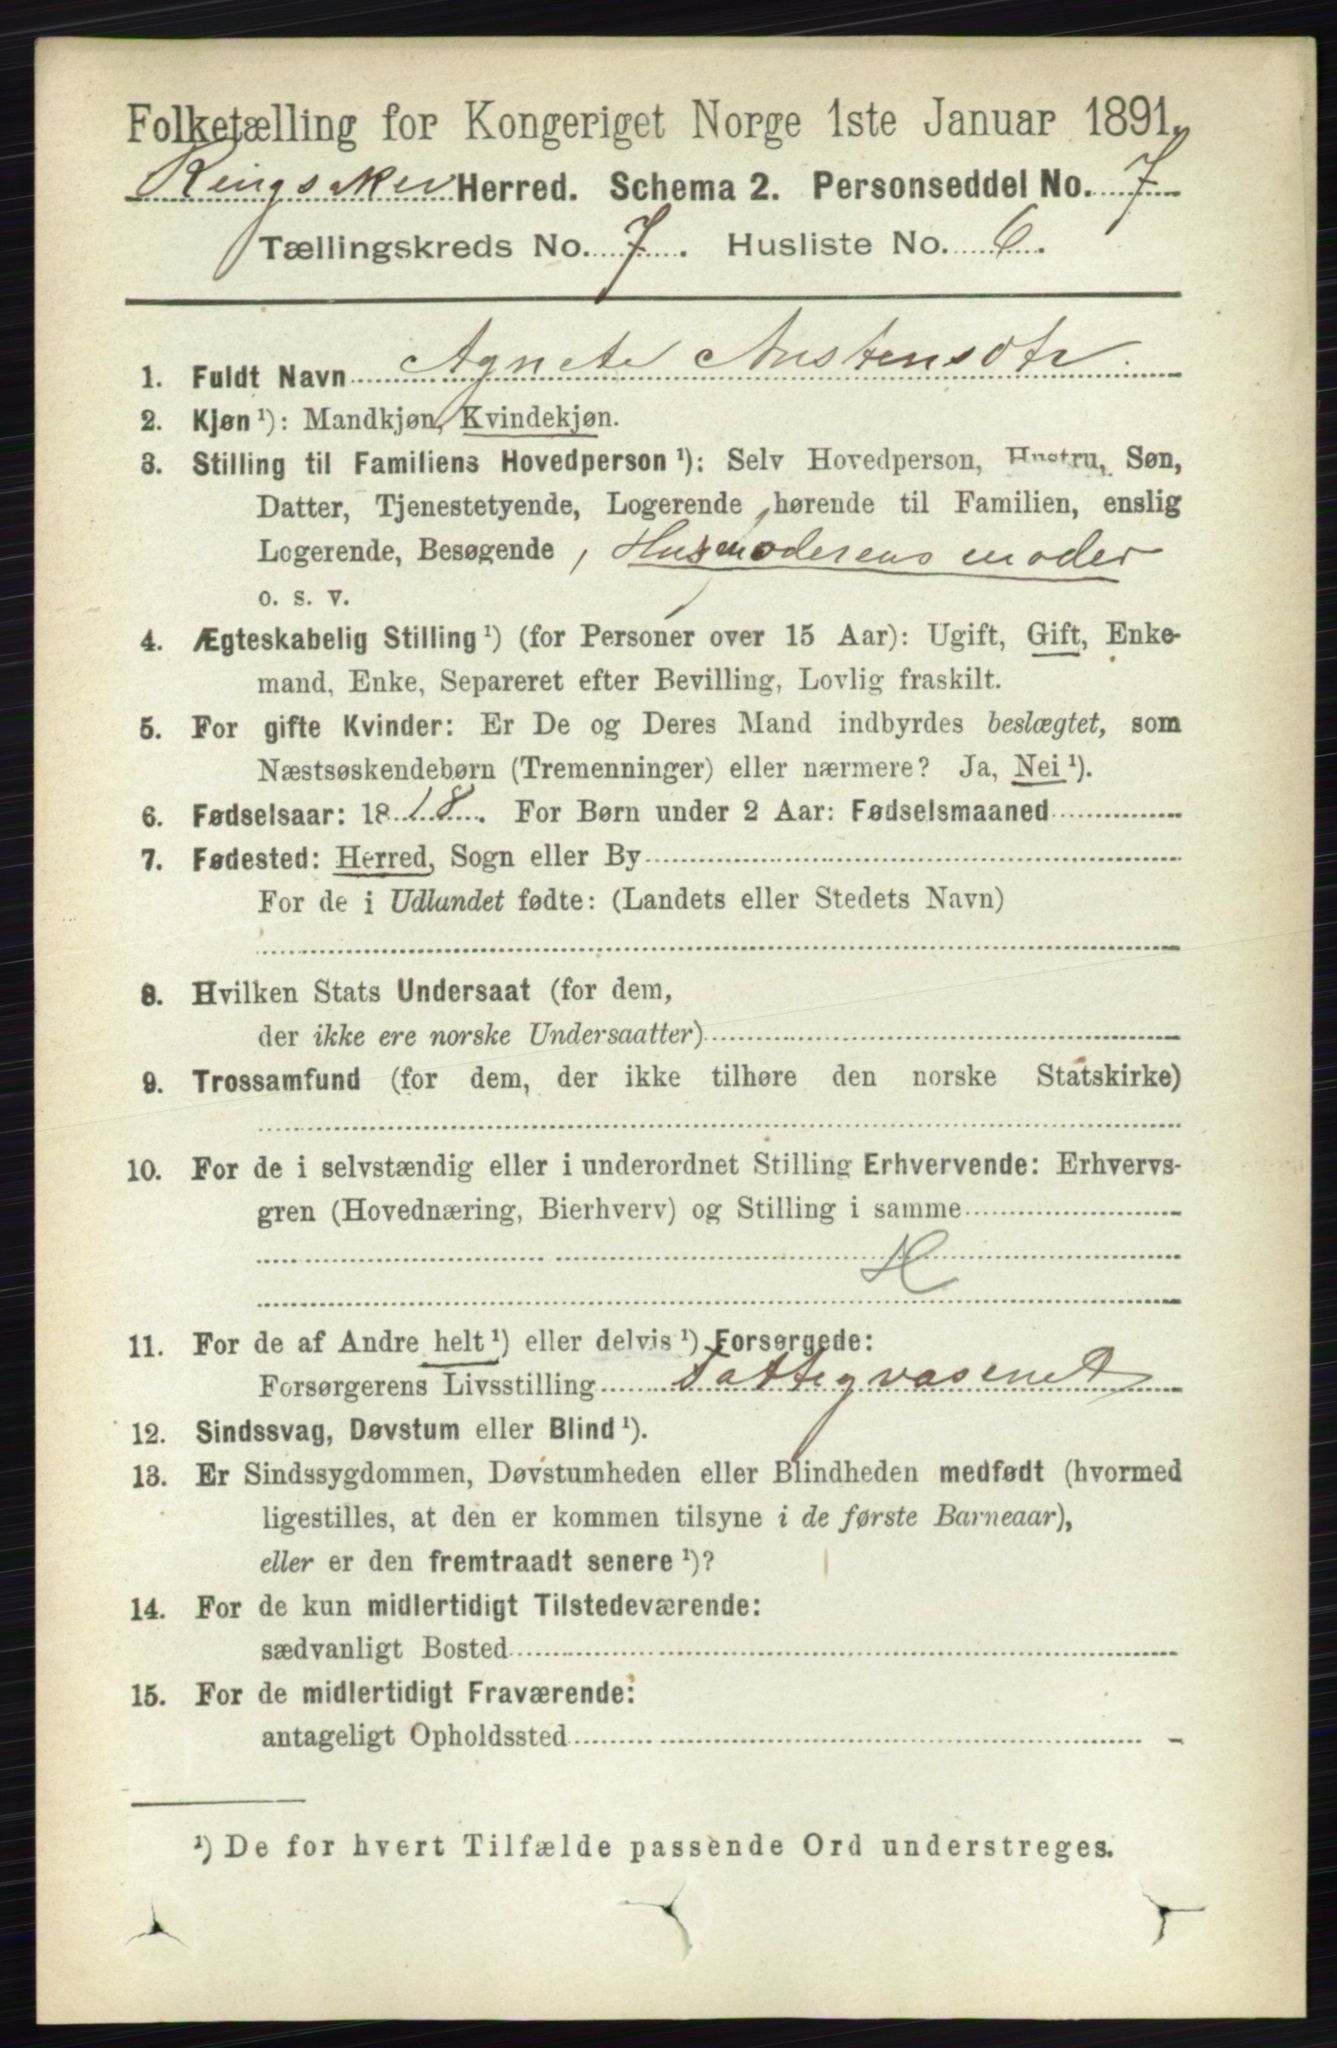 Folketælling for Kongeriget Norge 1ste Januar 1891.
Ringsaker Herred. Schema 2. Personseddel No. 7
Tællingskreds No. 7. Husliste No. 6.
1. Fuldt Navn Agnete Austensdtr.
2. Kjøn ¹): Mandkjøn, Kvindekjøn.
3. Stilling til Familiens Hovedperson ¹): Selv Hovedperson, Hustru, Søn,
Datter, Tjenestetyende, Logerende hørende til Familien, enslig
Logerende, Besøgende , Husmoderens moder
o. s. v.
4. Ægteskabelig Stilling ¹) (for Personer over 15 Aar): Ugift, Gift, Enke-
mand, Enke, Separeret efter Bevilling, Lovlig fraskilt.
5. For gifte Kvinder: Er De og Deres Mand indbyrdes beslægtet, som
Næstsøskendebørn (Tremenninger) eller nærmere? Ja, Nei ¹).
6. Fødselsaar: 1818. For Børn under 2 Aar: Fødselsmaaned
7. Fødested: Herred, Sogn eller By
For de i Udlandet fødte: (Landets eller Stedets Navn)
8. Hvilken Stats Undersaat (for dem,
der ikke ere norske Undersaatter)
9. Trossamfund (for dem, der ikke tilhøre den norske Statskirke)
10. For de i selvstændig eller i underordnet Stilling Erhvervende: Erhvervs-
gren (Hovednæring, Bierhverv) og Stilling i samme
H
11. For de af Andre helt ¹) eller delvis ¹) Forsørgede:
Forsørgerens Livsstilling Fattigvæsenet
12. Sindssvag, Døvstum eller Blind ¹).
13. Er Sindssygdommen, Døvstumheden eller Blindheden medfødt (hvormed
ligestilles, at den er kommen tilsyne i de første Barneaar),
eller er den fremtraadt senere ¹)?
14. For de kun midlertidigt Tilstedeværende:
sædvanligt Bosted
15. For de midlertidigt Fraværende:
antageligt Opholdssted
¹) De for hvert Tilfælde passende Ord understreges.